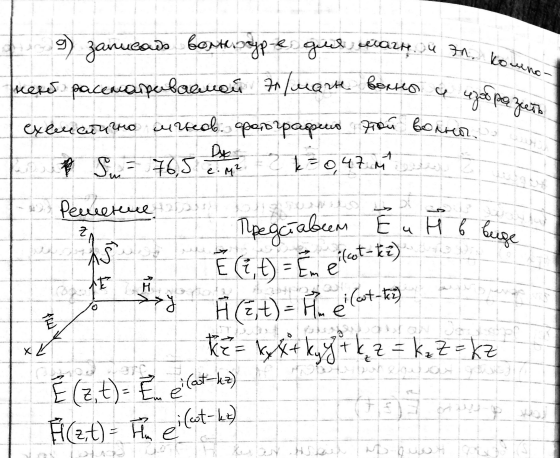 9) Записать волн. ур-е для магн. и эл. компо-
нент рассматриваемой эл/магн волны и изобразить
схематично мгнов. фотографию этой волны.
S_m = 76,5 Дж/(с·м²) k = 0,47 м⁻¹
Решение.
Представим E⃗ и H⃗ в виде
z⃗ S⃗ k⃗ H⃗ 0 y E⃗ x
E⃗(r⃗,t) = E⃗_m e^{i(ωt-k⃗r⃗)}
H⃗(r⃗,t) = H⃗_m e^{i(ωt-k⃗r⃗)}
k⃗r⃗ = k_x x⁰ + k_y y⁰ + k_z z = k_z z = kz
E⃗(z,t) = E⃗_m e^{i(ωt-kz)}
H⃗(z,t) = H⃗_m e^{i(ωt-kz)}